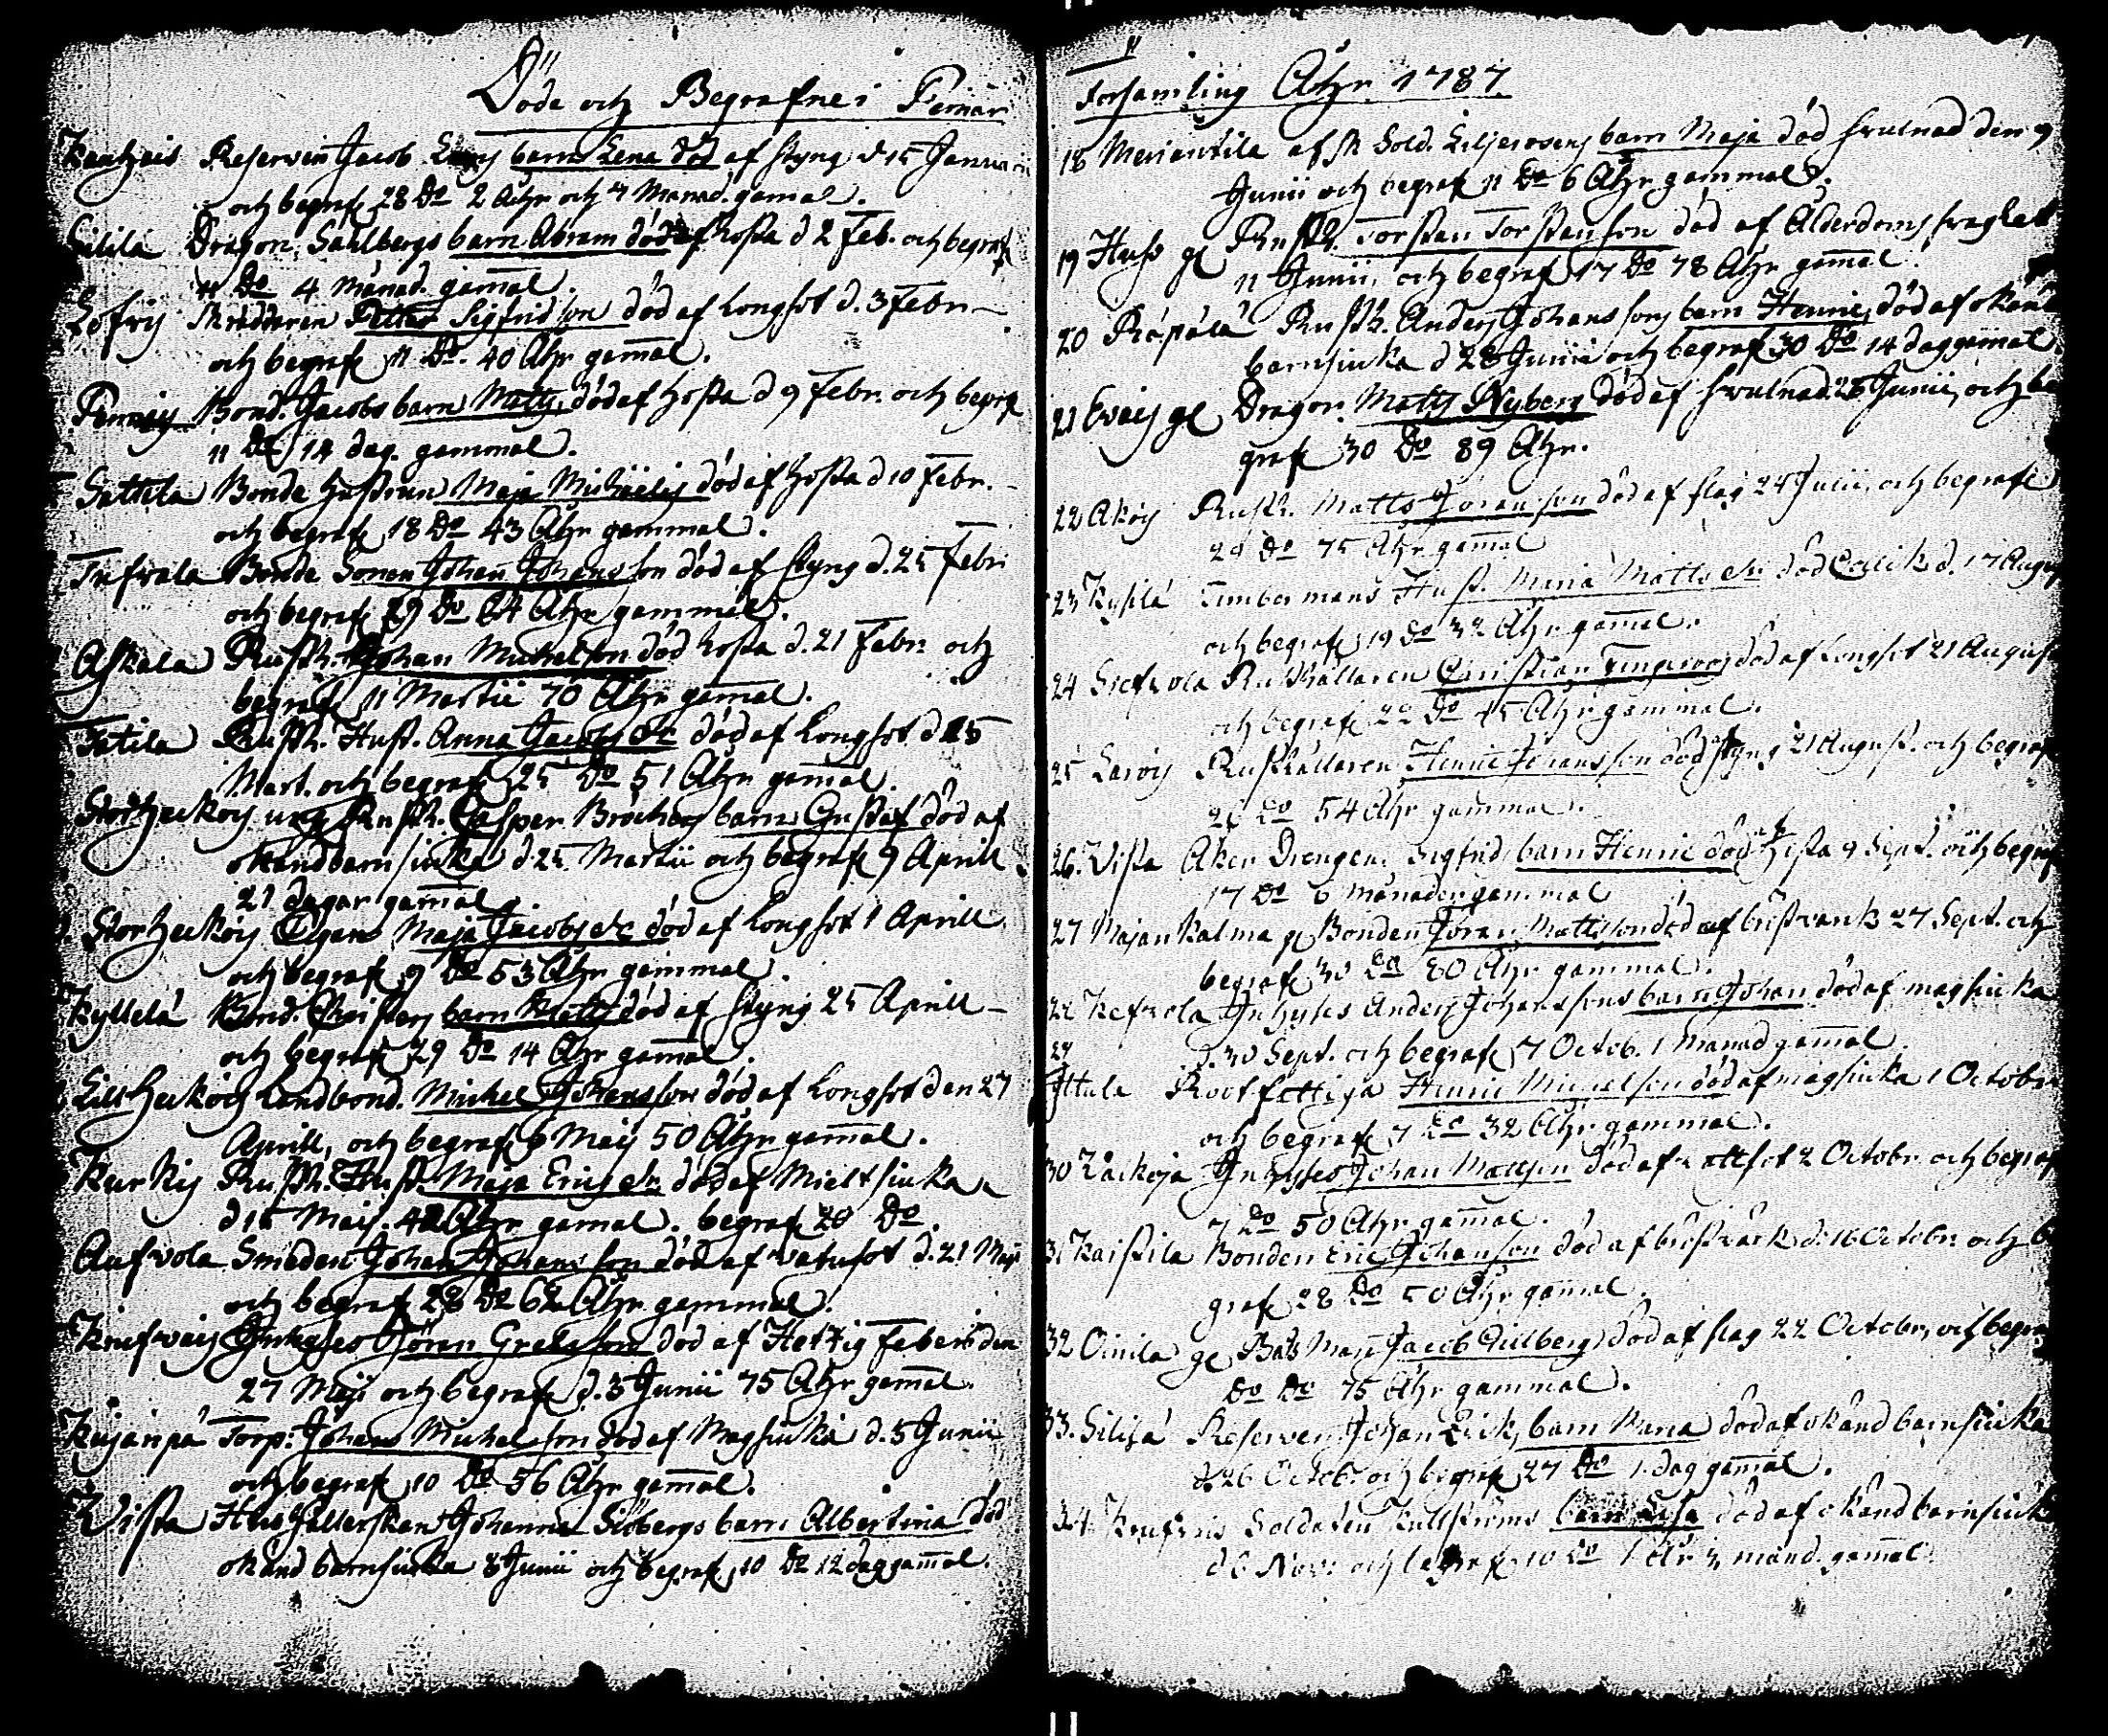 Döde och Begrafne i Pemar
Reserven Jacob barn Lena död af styng d 15 Januarii
och begraf 28 Do 2 Åhr och 4 Månad. gamal.
Silila Dragon. Sahlbergs barn Abram död af hosta d 2 Feb. och begraf
11 Do 4 månad. gamal.
Skräddaren Petter Sigfridson död af Longsot d. 3 Febr
och begrafe 11 Do. 40 Åhr gamal.
Bond. Jacobs barn Matts död af hosta d 9 Febr. och begraf
11 Do 14 dag. gammal.
Sattela Bonde hustrun Maja Michaelis död af hosta d 10 Febr.
och begrafe 18 Do 43 Åhr gammal.
Bonde Sonen Johan Johansson död af styng d. 25 Febr
och begrafe 29 Do 24 Åhr gammal.
Askala Rusth. Johan Michelsson död hosta d. 21 Febr och
begrafe 11 Martii 70 Åhr gamal.
Tatila Rusth. Hust. Anna Jacobs dr död af Longsot d 15
Mart. och begraf 25 Do 51 Åhr gamal.
Storheikois ung Rusth. Casper Brochers barn Gustaf död af
okand barnsiuka d 25 Martii och begraf 9 Aprill
21 dagar gamal
Storheikois Maja Jacobs dr död af Longsot 1 Aprill
och begraf 9 Do 53 Åhr gammal.
Kyllelä Bond. Christers barn Matts död af styng 25 Aprill
och begraf 29 Do 14 Åhr gamal.
Lillheikois Landbond. Michel Johansson död af Longsot den 27
Aprill, och begraf 6 Maij 50 Åhr gamal.
Karkis Rusth. Hust. Maja Erics dr död af Mieltsiuka
d 15 Maij. 42 Åhr gamal. begraf 20 Do.
Aufvola Smeden Johan Johansson död af vatusot d. 21 Maji
och begraf 28 Do 62 Åhr gammal.
Inhyses Jören Grelsson död af Hettig Feber den
27 Maji och begraf d. 3 Junii 75 Åhr gamal.
Kujanpä Torp. Johan Michelsson död af Magsiuka d. 5 Junii
och begraf 10 Do 56 Åhr gamal.
Vista Hushållerskan Johanna Siöbergs barn Albertina död
okänd barnsiuka 8 Junii och begraf 10 Do 12 dag gamal.
Forsamling Åhr 1787.
18 Meriankila afsk Sold. Liljeroosens barn Maja död svulnad den 9
Junii och begraf 11 Do 6 Åhr gammal.
19 Huso gl Rusth. Torstan Torstansson död af Ålderdoms svaghet
11 Junii, och begraf 17 Do 78 Åhr gamal.
20 Räpälä Rusth. Anders Johanssons barn Henric, död af okänd
barnsiuka d 28 Junii och begraf 30 Do 14 dag gamal.
21 Evais gl Dragon. Matts Nyberg död af svulnad. 26 Junii, och be
graf 30 Do 89 Åhr.
22 Akois Rusth. Matts Joransson död af slag 24 Julii, och begrafe
29 Do 75 Åhr gamal
23 Kysilä Timbermans Hust. Maria Matts dr död d. 17 August
och begrafe 19 Do 32 Åhr gamal.
24 Rusthållaren Christian Fingeroos död af Longsot 21 August
och begrafe 22 Do 45 Åhr gammal.
25 Rusthållaren Henric Johansson död styng 21 August. och begraf
26 Do 54 Åhr gammal.
26. Vista Åker Drengen Sigfrids barn Henric död af Hosta 9 Sept. och begraf
17 Do 6 månader gammal
27 Majankalma gl Bonden Jöran Mattsson död af bröstvärk 27 Sept. och
begraf 30 Do 80 Åhr gammal.
Inhyses Anders Johanssons barn Johan död af magsiuka
d. 30 Sept. och begraf 7 Octob. 1 månad gamal.
29
Ittala Rootfattiga Henric Michelsson död af magsiuka 1 October
och begraf 7 Do 32 Åhr gammal.
30 Inhyses Johan Mattsson död af 2 Octobr. och begraf
7 Do 50 Åhr gamal.
31 Kaistila Bonden Eric Johansson död af bröstvärk d. 16 Octobr. och be
graf 28 Do 50 Åhr gamal.
32 Oinila gl Båtsman Jacob Gillberg död af slag 22 October, och begra
Do Do 75 Åhr gammal.
33. Reserven Johan barn Maria död af okänd barnsiuka
d. 26 Octob. och begraf 27 Do 1. dag gamal.
34. Soldaten barn död af okänd barnsiuk
d 6 Nov: och begraf 10 Do 1 Åhr månd. gamal.